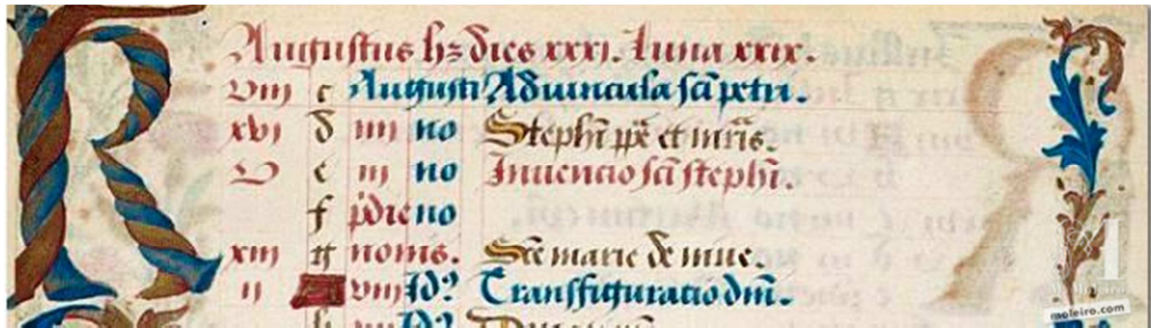 Augustus hz dies xxxi. Luna xxix.
viii c Augusti Aduincula scī petri.
xvi d iiii no Stephī pp̄e et mr̄is.
v e iii no Inuencio scī stephī.
f pdie no
xiii g nonis. Scē marie de niue.
ii viii Id? Transfiguratio dn̄i.
h Id?
moleiro.com